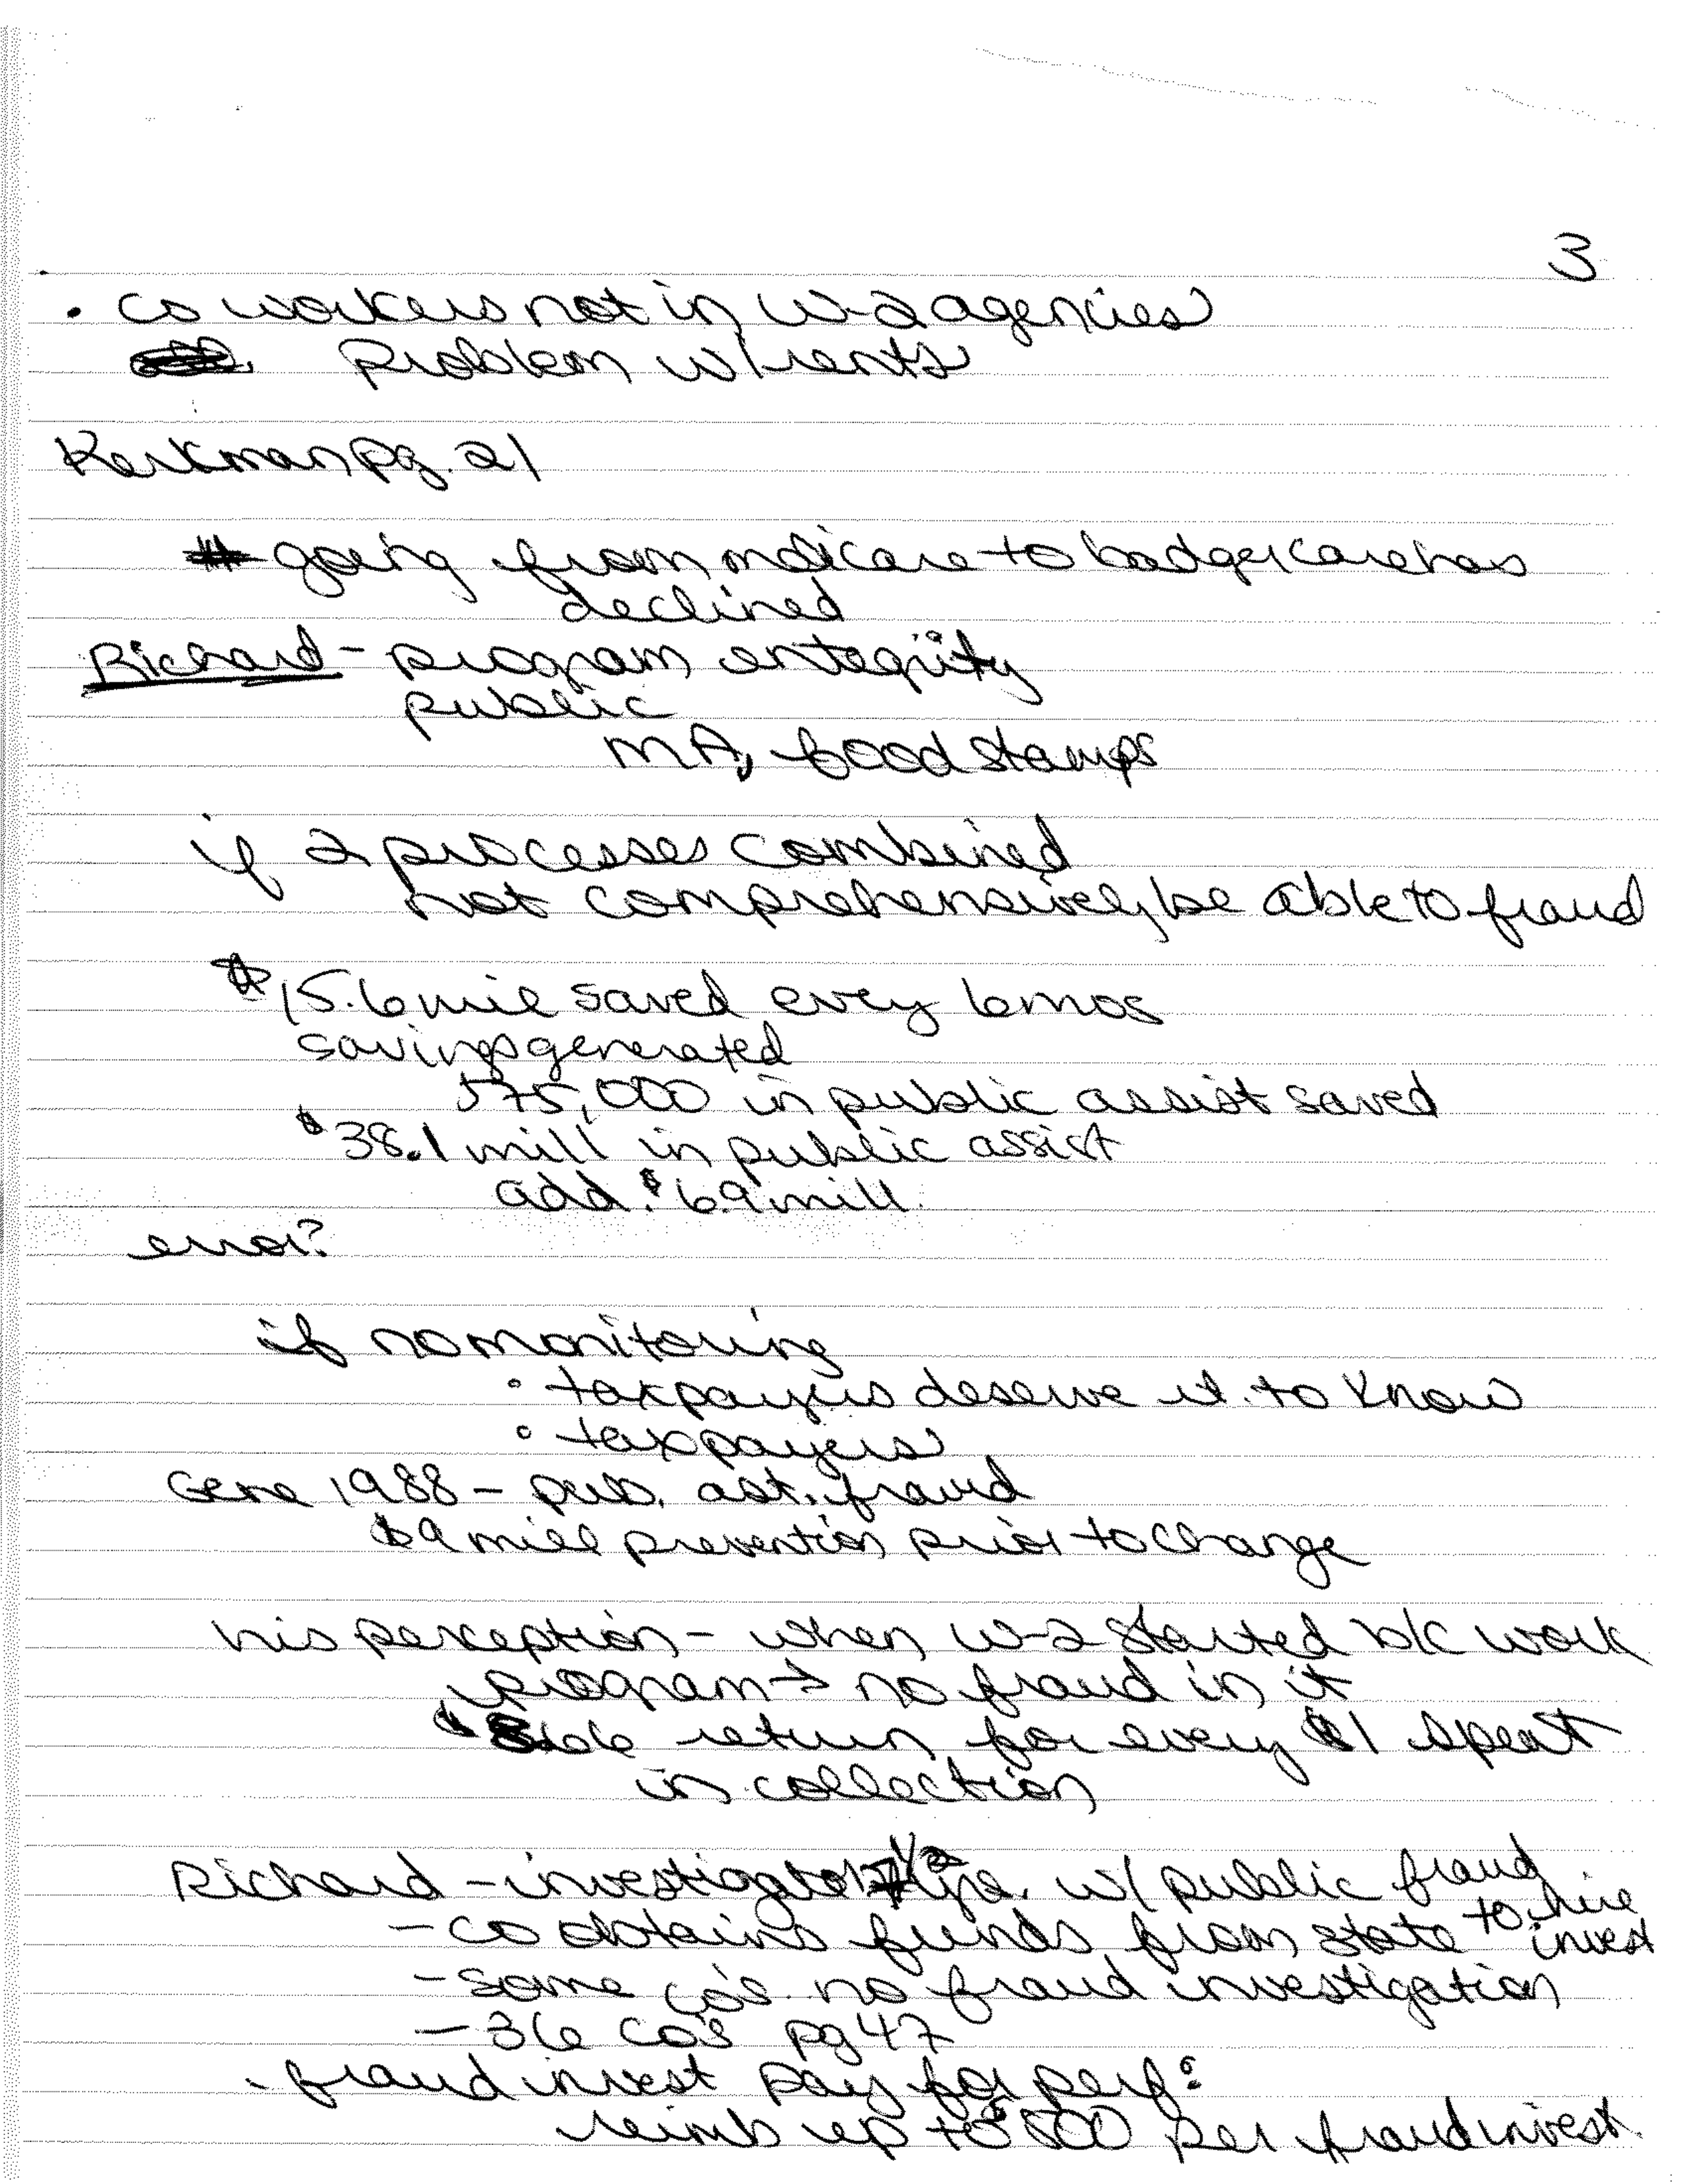 3
· co workers not in W-2 agencies
problem w/ rents
Kerkman pg. 21
# going from medicare to badgercare has
declined
Richard - program entegrity
public
MA, food stamps
if 2 processes combined
not comprehensively be able to fraud
$15.6 mil saved every 6 mos
savings generated
575,000 in public assist saved
$38.1 mill in public assist
add. $6.9 mill.
error?
if no monitoring
· taxpayers deserve it to know
· taxpayers
Gene 1988 - pub. ast. fraud
$9 mill prevention prior to change
his perception - when W-2 started b/c work
program → no fraud in it
return for every $1 spent
in collection
Richard - investigator 1/2 w/ public fraud
- co obtains funds from state to hire
invest
- some co's no fraud investigation
- 36 co's pg 47
· fraud invest pay for perf:
reimb up to $500 per fraud invest.